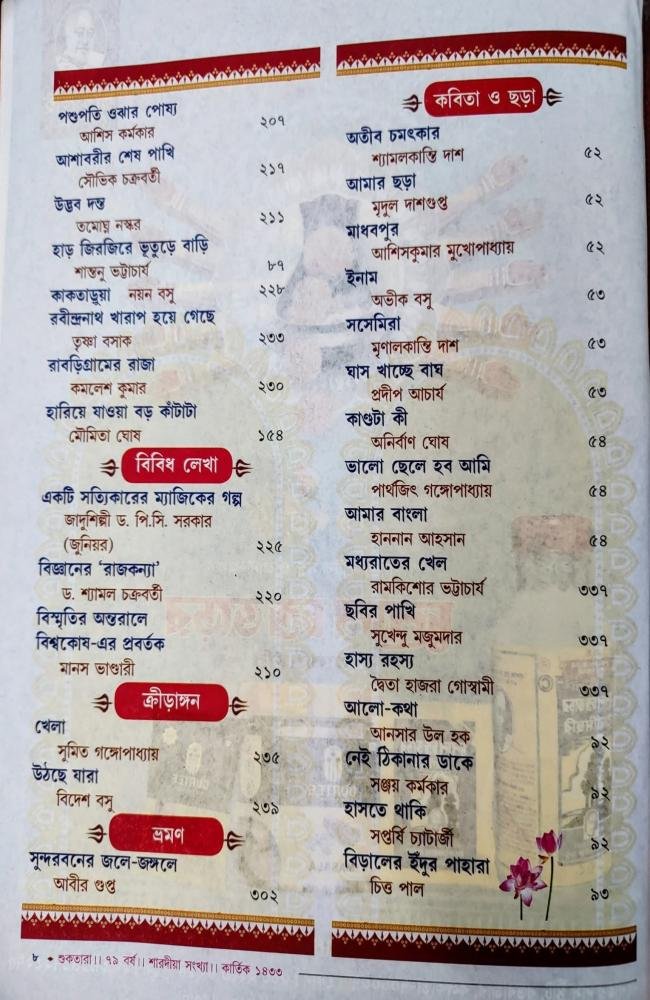 পশুপতি ওঝার পোষ্য
আশিস কর্মকার ২০৭
আশাবরীর শেষ পাখি
সৌভিক চক্রবর্তী ২১৭
উদ্ভব দত্ত
তমোঘ্ন নস্কর ২১১
হাড় জিরজিরে ভূতুড়ে বাড়ি
শান্তনু ভট্টাচার্য ৮৭
কাকতাড়ুয়া নয়ন বসু ২২৮
রবীন্দ্রনাথ খারাপ হয়ে গেছে
তৃষ্ণা বসাক ২৩৩
রাবড়িগ্রামের রাজা
কমলেশ কুমার ২৩০
হারিয়ে যাওয়া বড় কাঁটাটা
মৌমিতা ঘোষ ১৫৪
বিবিধ লেখা
একটি সত্যিকারের ম্যাজিকের গল্প
জাদুশিল্পী ড. পি.সি. সরকার
(জুনিয়র) ২২৫
বিজ্ঞানের ‘রাজকন্যা’
ড. শ্যামল চক্রবর্তী ২২০
বিস্মৃতির অন্তরালে
বিশ্বকোষ-এর প্রবর্তক
মানস ভাণ্ডারী ২১০
ক্রীড়াঙ্গন
খেলা
সুমিত গঙ্গোপাধ্যায় ২৩৫
উঠছে যারা
বিদেশ বসু ২৩৯
ভ্রমণ
সুন্দরবনের জলে-জঙ্গলে
আবীর গুপ্ত ৩০২
কবিতা ও ছড়া
অতীব চমৎকার
শ্যামলকান্তি দাশ ৫২
আমার ছড়া
মৃদুল দাশগুপ্ত ৫২
মাধবপুর
আশিসকুমার মুখোপাধ্যায় ৫২
ইনাম
অভীক বসু ৫৩
সসেমিরা
মৃণালকান্তি দাশ ৫৩
ঘাস খাচ্ছে বাঘ
প্রদীপ আচার্য ৫৩
কাণ্ডটা কী
অনির্বাণ ঘোষ ৫৪
ভালো ছেলে হব আমি
পার্থজিৎ গঙ্গোপাধ্যায় ৫৪
আমার বাংলা
হাননান আহসান ৫৪
মধ্যরাতের খেল
রামকিশোর ভট্টাচার্য ৩৩৭
ছবির পাখি
সুখেন্দু মজুমদার ৩৩৭
হাস্য রহস্য
দ্বৈতা হাজরা গোস্বামী ৩৩৭
আলো-কথা
আনসার উল হক ৯২
নেই ঠিকানার ডাকে
সঞ্জয় কর্মকার ৯২
হাসতে থাকি
সপ্তর্ষি চ্যাটার্জী ৯২
বিড়ালের ইঁদুর পাহারা
চিত্ত পাল ৯৩
৮ ✦ শুকতারা।। ৭৯ বর্ষ।। শারদীয়া সংখ্যা।। কার্তিক ১৪৩৩